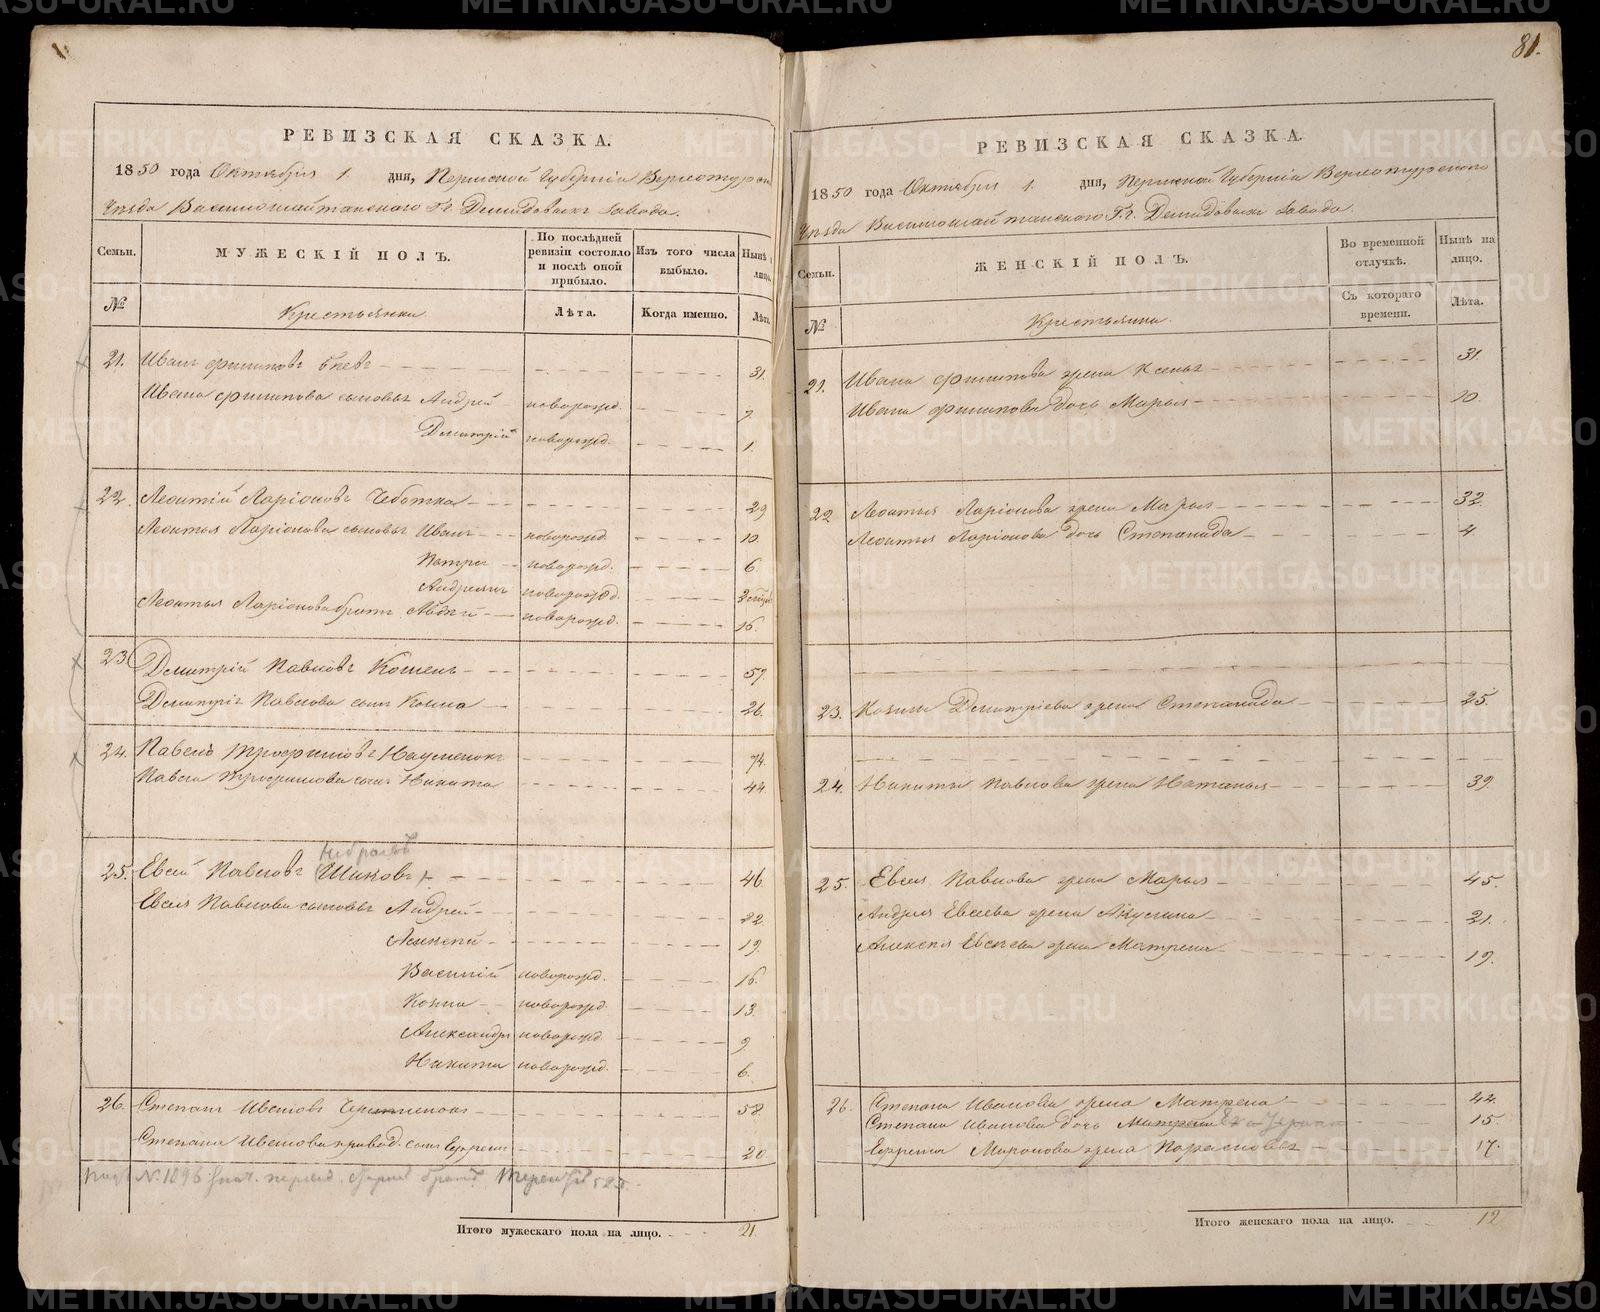 81.
РЕВИЗСКАЯ СКАЗКА.
1850 года Октября 1. дня, Пермской Губерніи Верхотурска
Уѣзда Висимошайтанскаго Гг. Демидовыхъ завода.
Семьи.
МУЖЕСКІЙ ПОЛЪ.
По послѣдней ревизіи состояло и послѣ оной прибыло.
Изъ того числа выбыло.
Нынѣ лицо
№
Крестьянка
Лѣта.
Когда именно.
Лѣта.
21. Иванъ Филиповъ 31.
Ивана Филипова сыновья Андрей новорожд. 7.
Дмитрій новорожд. 1.
22. Леонтій Ларіоновъ Чеботка 29
Леонтья Ларіонова сыновья Иванъ новорожд. 10.
Петръ новорожд. 6.
Андреянъ новорожд. 3
Леонтья Ларіонова братъ Авдѣй новорожд. 16.
23. Дмитрій Павловъ Кошель 57.
Дмитрія Павлова сынъ Козма 26.
24. Павелъ Трофимовъ Науменокъ 74.
Павла Трофимова сынъ Никита 44.
25. Евсей Павловъ (Шиковъ) 46.
Евсея Павлова сыновья Андрей 22.
Алексѣй 19.
Василій новорожд. 16.
Козма новорожд. 13.
Александръ новорожд. 9
Никита новорожд. 6.
26. Степанъ Ивановъ 58.
Степана Иванова привод. сынъ Ефремъ 20.
№ 1096 братъ Терентій
Итого мужескаго пола на лицо. 21.
РЕВИЗСКАЯ СКАЗКА.
1850 года Октября 1. дня, Пермской Губерніи Верхотурскаго
Уѣзда Висимошайтанскаго Гг. Демидовыхъ завода.
Семьи.
ЖЕНСКІЙ ПОЛЪ.
Во временной отлучкѣ.
Нынѣ на лицо.
№
Крестьянка.
Съ котораго времени.
Лѣта.
21. Ивана Филипова жена Ксенья 31.
Ивана Филипова дочь Марья 10.
22 Леонтья Ларіонова жена Марья 32.
Леонтья Ларіонова дочь Степанида 4.
23. Козмы Дмитріева жена Степанида 25.
24. Никиты Павлова жена Наталья 39.
25. Евсея Павлова жена Марья 45.
Андрея Евсеева жена Акулина 21.
Алексѣя Евсеева жена Матрена 19.
26. Степана Иванова жена Матрена 44.
Степана Иванова дочь Матрена 15.
Ефрема Миронова жена Парасковья 17.
Итого женскаго пола на лицо. 12
METRIKI.GASO-URAL.RU